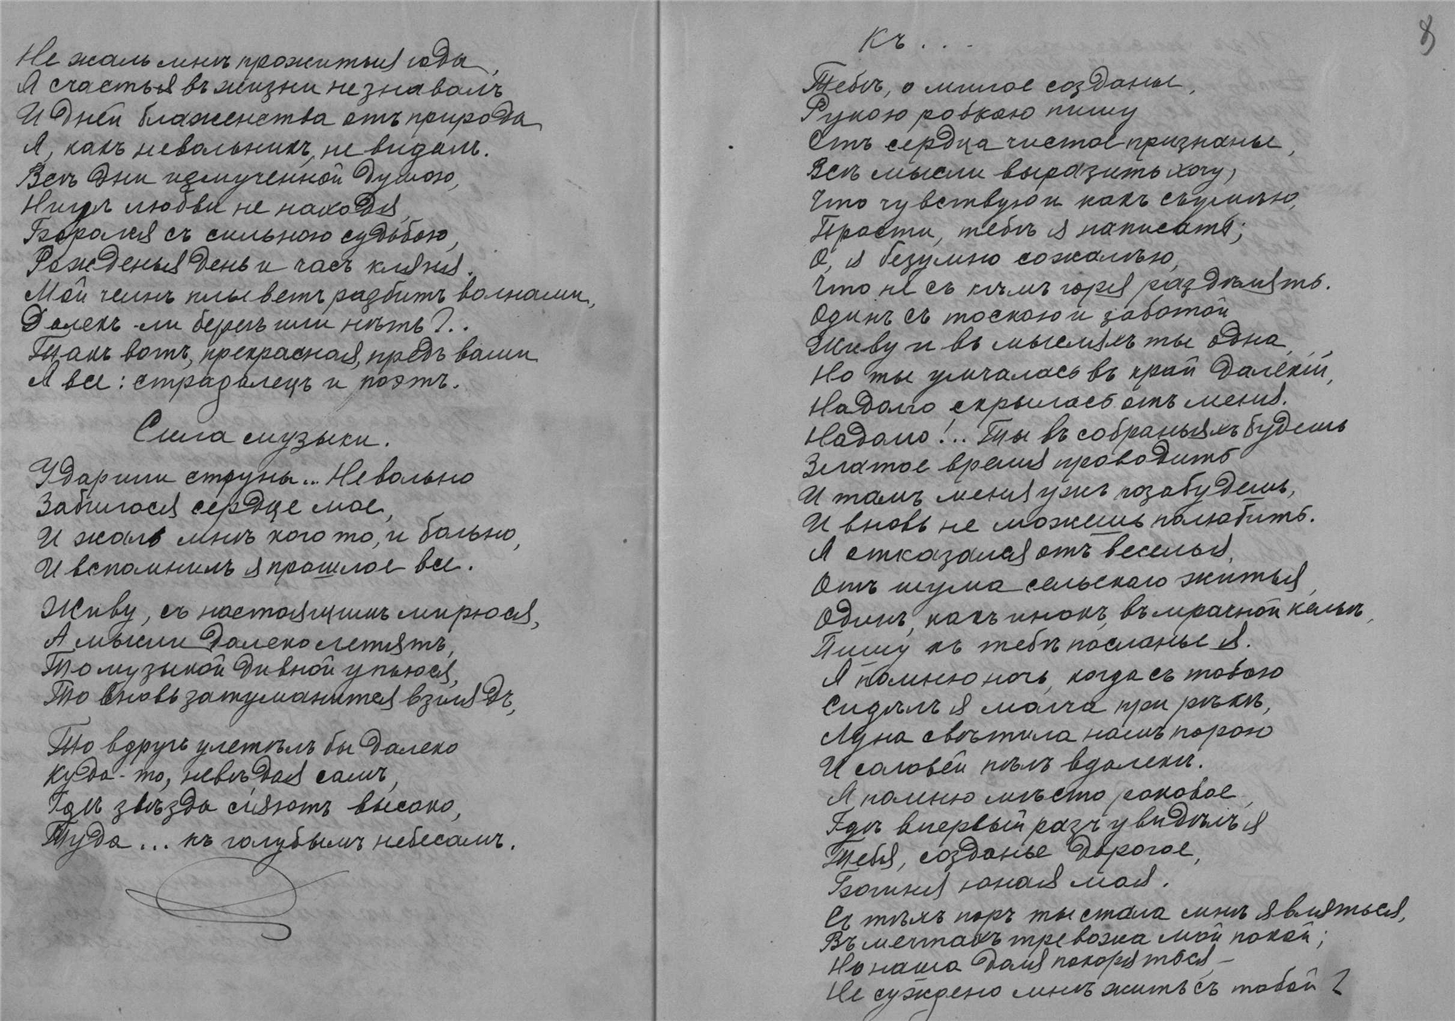 Не жаль мнѣ прожитыя годы,
Я счастья въ жизни не знавалъ
И дней блаженства отъ природы
Я, какъ невольникъ, не видалъ.
Всѣ дни измученной душою,
Нигдѣ любви не находя,
Боролся съ сильною судьбою,
Рожденья день и часъ кляня.
Мой челнъ плыветъ разбитъ волнами,
Далекъ-ли берегъ или нѣтъ?..
Такъ вотъ, прекрасная, предъ вами
Я все: страдалецъ и поэтъ.
Сила музыки.
Ударили струны... Невольно
Забилося сердце мое,
И жаль мнѣ кого то, и больно,
И вспомнилъ я прошлое все.
Живу, съ настоящимъ мирюся,
А мысли далеко летятъ,
То музыкой дивной упьюся,
То вновь затуманится взглядъ,
То вдругъ улетѣлъ бы далеко
Куда-то, невѣдая самъ,
Гдѣ звѣзды сіяютъ высоко,
Туда... къ голубымъ небесамъ.
8
Къ...
Тебѣ, о милое созданье,
Рукою робкою пишу
Отъ сердца чистое признанье,
Всѣ мысли выразить хочу,
Что чувствую и какъ съумѣю,
Прости, тебѣ я написать;
О, я безумно сожалѣю,
Что не съ кѣмъ горя раздѣлять.
Одинъ съ тоскою и заботой
Живу и въ мысляхъ ты одна,
Но ты умчалась въ край далекій,
Надолго скрылась отъ меня.
Надолго!.. Ты въ собраньяхъ будешь
Златое время проводить
И тамъ меня ужъ позабудешь,
И вновь не можешь полюбить.
Я отказался отъ веселья,
Отъ шума сельскаго житья,
Одинъ, какъ инокъ, въ мрачной кельѣ,
Пишу къ тебѣ посланье я.
Я помню ночь, когда съ тобою
Сидѣлъ я молча при рѣкѣ,
Луна свѣтила намъ порою
И соловей пѣлъ вдалекѣ.
Я помню мѣсто роковое,
Гдѣ впервый разъ увидѣлъ я
Тебя, созданье дорогое,
Богиня юная моя.
Съ тѣхъ поръ ты стала мнѣ являться,
Въ мечтахъ тревожа мой покой;
Но наша доля покоряться, –
Не суждено мнѣ жить съ тобой?